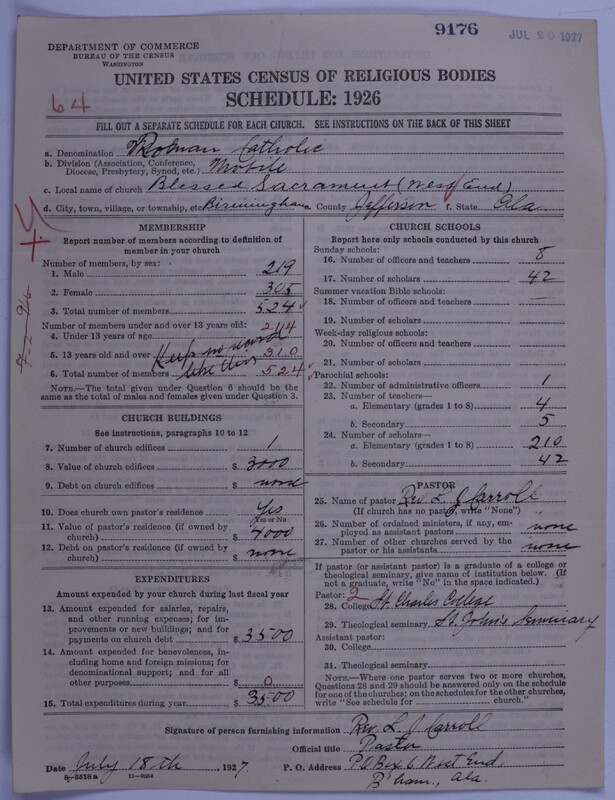 9176
JUL 20 1927
DEPARTMENT OF COMMERCE
BUREAU OF THE CENSUS
WASHINGTON
UNITED STATES CENSUS OF RELIGIOUS BODIES
64
SCHEDULE: 1926
FILL OUT A SEPARATE SCHEDULE FOR EACH CHURCH. SEE INSTRUCTIONS ON THE BACK OF THIS SHEET
a. Denomination Roman Catholic
b. Division (Association, Conference, Diocese, Presbytery, Synod, etc.) Mobile
c. Local name of church Blessed Sacrament (West End)
d. City, town, village, or township, etc. Birmingham e. County Jefferson f. State Ala
MEMBERSHIP
Report number of members according to definition of
member in your church
Number of members, by sex:
1. Male 219
2. Female 305
3. Total number of members 524
Number of members under and over 13 years old:
4. Under 13 years of age 214
5. 13 years old and over Keep no record 310
6. Total number of members like this 524
NOTE.—The total given under Question 6 should be
same as the total of males and females given under Question 3.
CHURCH BUILDINGS
See instructions, paragraphs 10 to 12
7. Number of church edifices 1
8. Value of church edifices $ 3000
9. Debt on church edifices $ none
10. Does church own pastor's residence Yes
Yes or No
11. Value of pastor's residence (if owned by
church) $ 4000
12. Debt on pastor's residence (if owned by
church) $ none
EXPENDITURES
Amount expended by your church during last fiscal year
13. Amount expended for salaries, repairs,
and other running expenses; for im-
provements or new buildings; and for
payments on church debt $ 3500
14. Amount expended for benevolences,
including home and foreign missions; for
denominational support; and for all
other purposes $ 0
15. Total expenditures during year $ 3500
CHURCH SCHOOLS
Report here only schools conducted by this church
Sunday schools:
16. Number of officers and teachers 8
17. Number of scholars 42
Summer vacation Bible schools:
18. Number of officers and teachers —
19. Number of scholars
Week-day religious schools:
20. Number of officers and teachers
21. Number of scholars
Parochial schools:
22. Number of administrative officers 1
23. Number of teachers—
a. Elementary (grades 1 to 8) 4
b. Secondary 5
24. Number of scholars—
a. Elementary (grades 1 to 8) 210
b. Secondary 42
PASTOR
25. Name of pastor Rev L J Carroll
(If church has no pastor, write "None")
26. Number of ordained ministers, if any, em-
ployed as assistant pastors none
27. Number of other churches served by the
pastor or his assistants none
If pastor (or assistant pastor) is a graduate of a college or
theological seminary, give name of institution below. (If
not a graduate, write "No" in the space indicated.)
Pastor: 2
28. College St. Charles College
29. Theological seminary St. John's Seminary
Assistant pastor:
30. College
31. Theological seminary
NOTE.—Where one pastor serves two or more churches,
Questions 28 and 29 should be answered only on the schedule
for one of the churches; on the schedules for the other churches,
write "See schedule for church."
Signature of person furnishing information Rev. L. J Carroll
Official title Pastor
Date July 18th, 1927. P. O. Address PO Box 6 West End,
B'ham, Ala.
8-5518a 11-9034